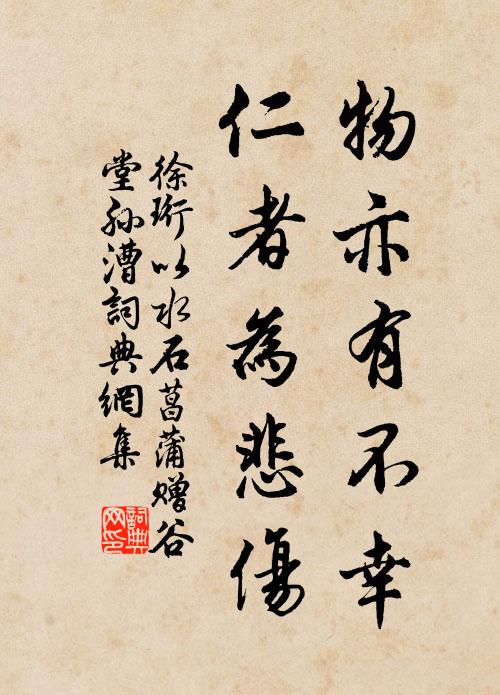 物亦有不幸
仁者為悲傷
徐珩以水石菖蒲贈谷
堂孙漕詞典網集
詞典网印